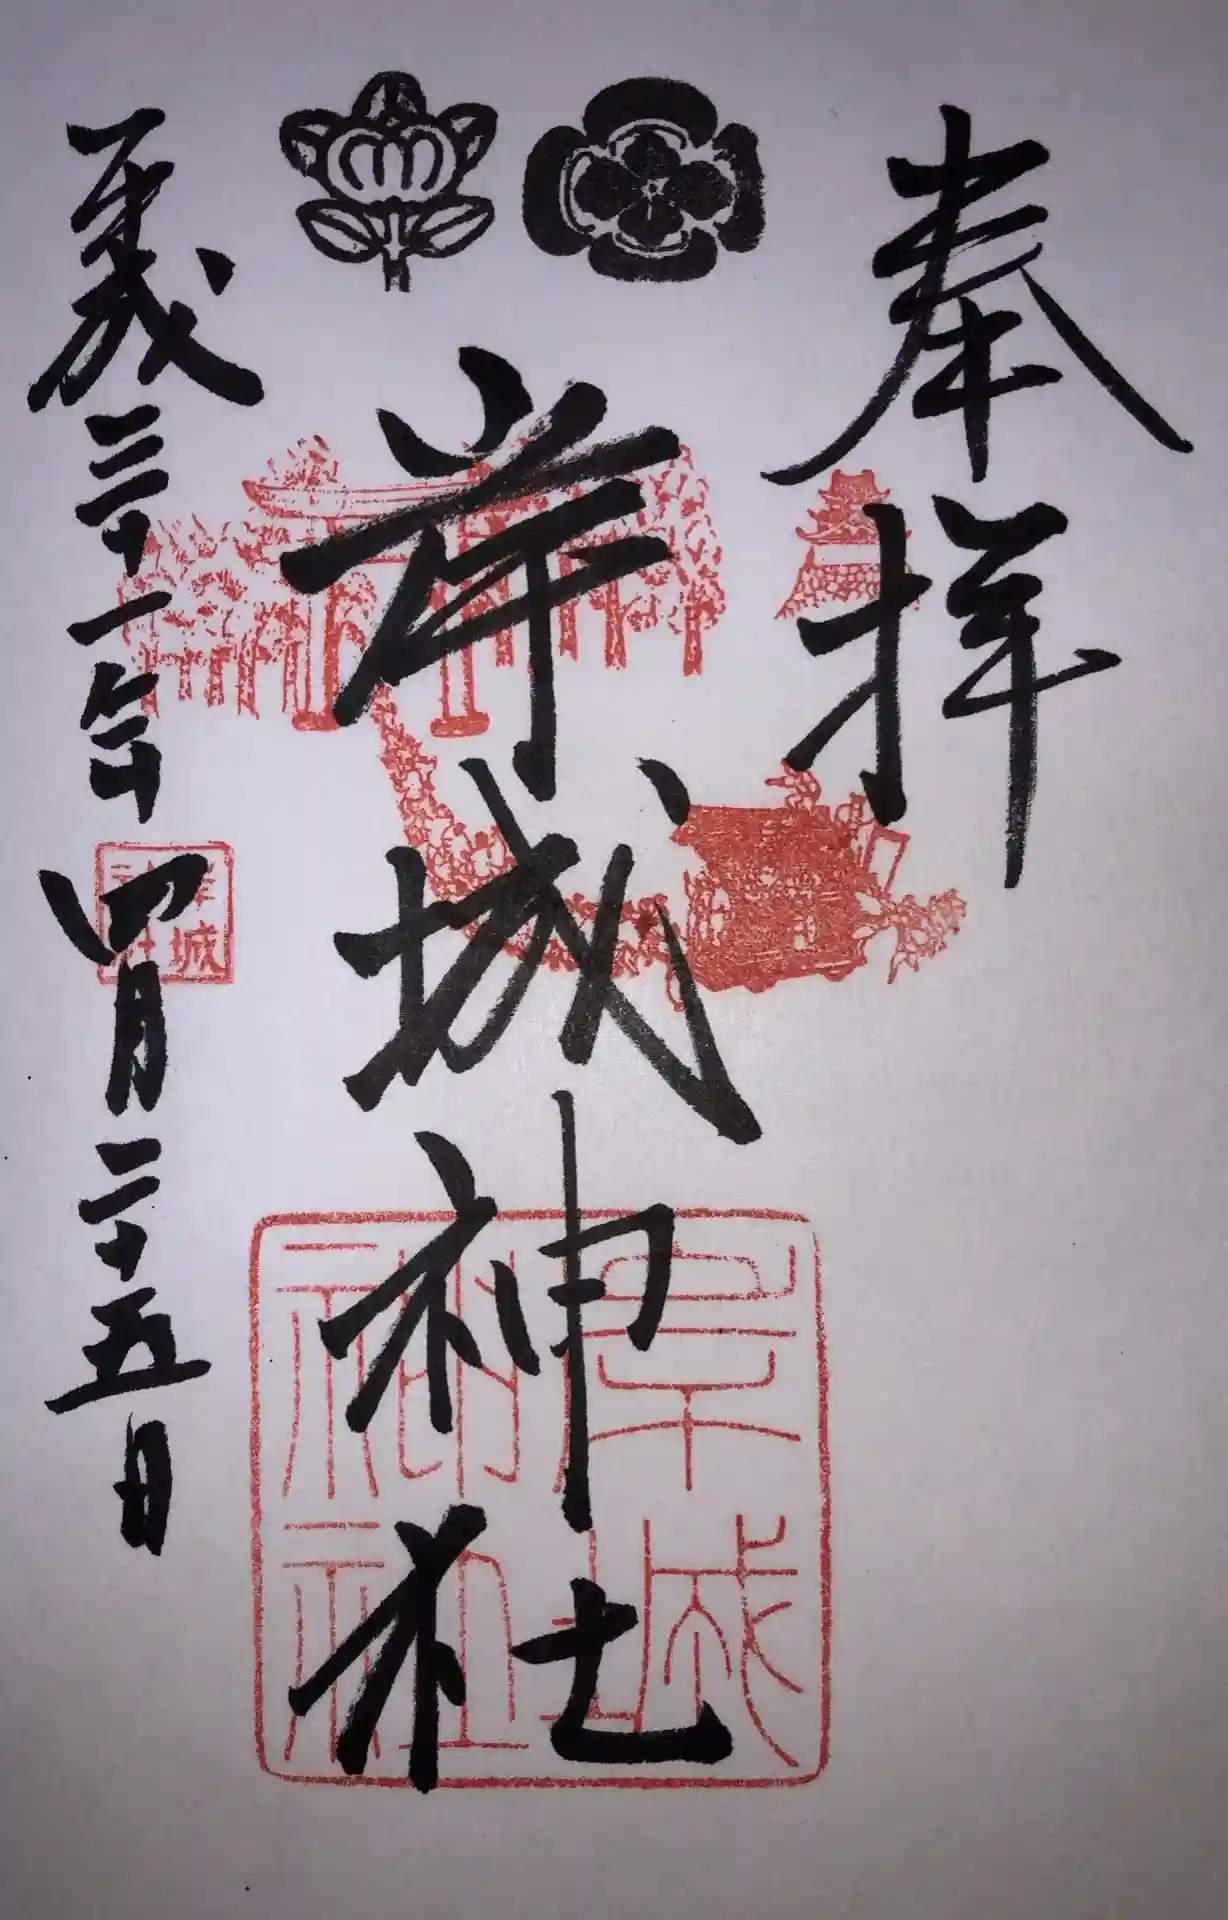 奉拝
岸城神社
岸城
神社
平成三十一年四月二十五日
岸城
神社